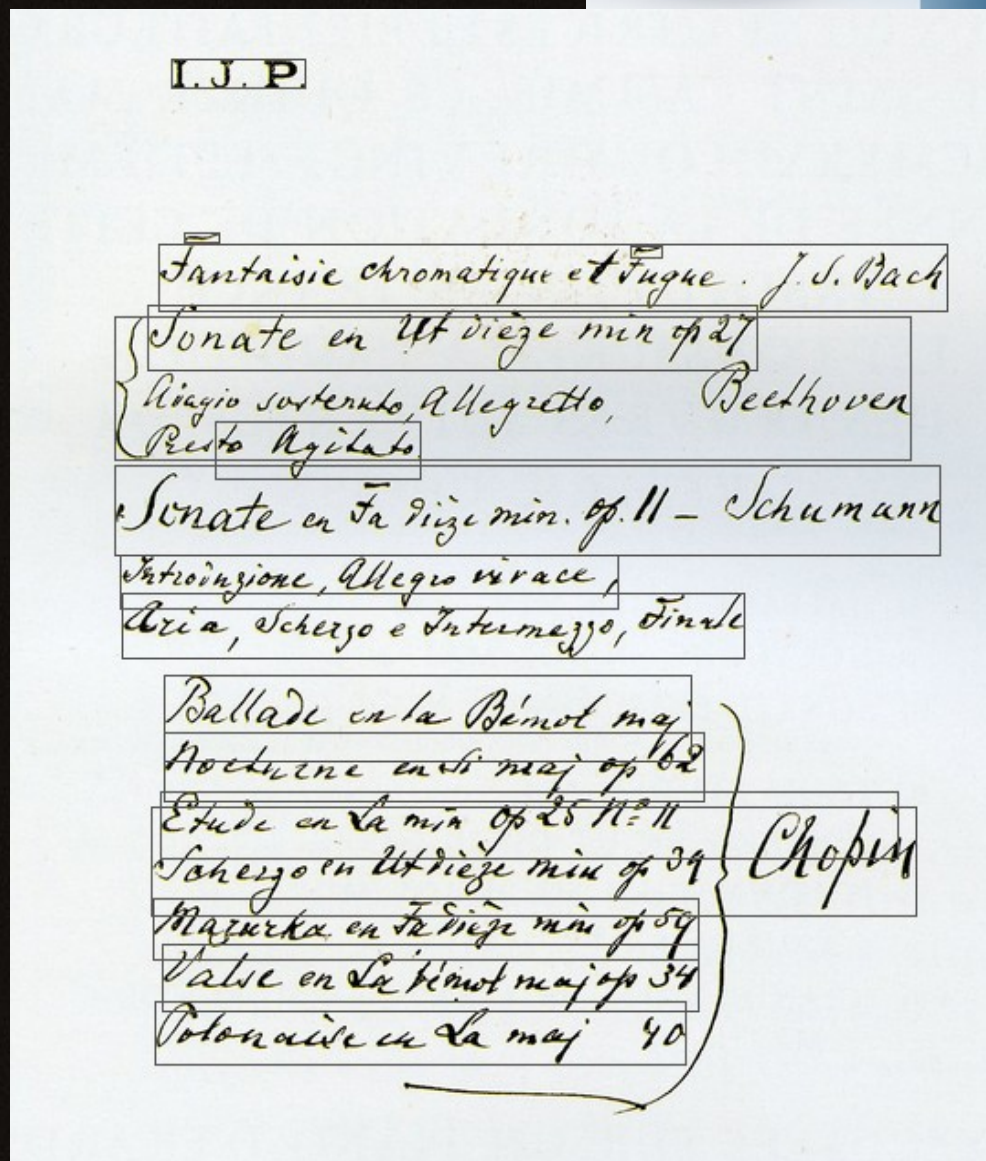 I. J. P.
Fantaisie chromatique et Fugue. J. S. Bach
Sonate en Ut dièze min op 27
Adagio sostenuto, Allegretto, Beethoven
Presto Agitato.
Sonate en Fa dièze min. op. 11 – Schumann
Introduzione, Allegro vivace,
Aria, Scherzo e Intermezzo, Finale
Ballade en la Bémol maj
Nocturne en si maj op 62
Etude en La min op 25 Nº 11
Scherzo en Ut dièze min op 39
Chopin
Mazurka en Fa dièze min op 59
Valse en La bémol maj op 34
Polonaise en La maj 40